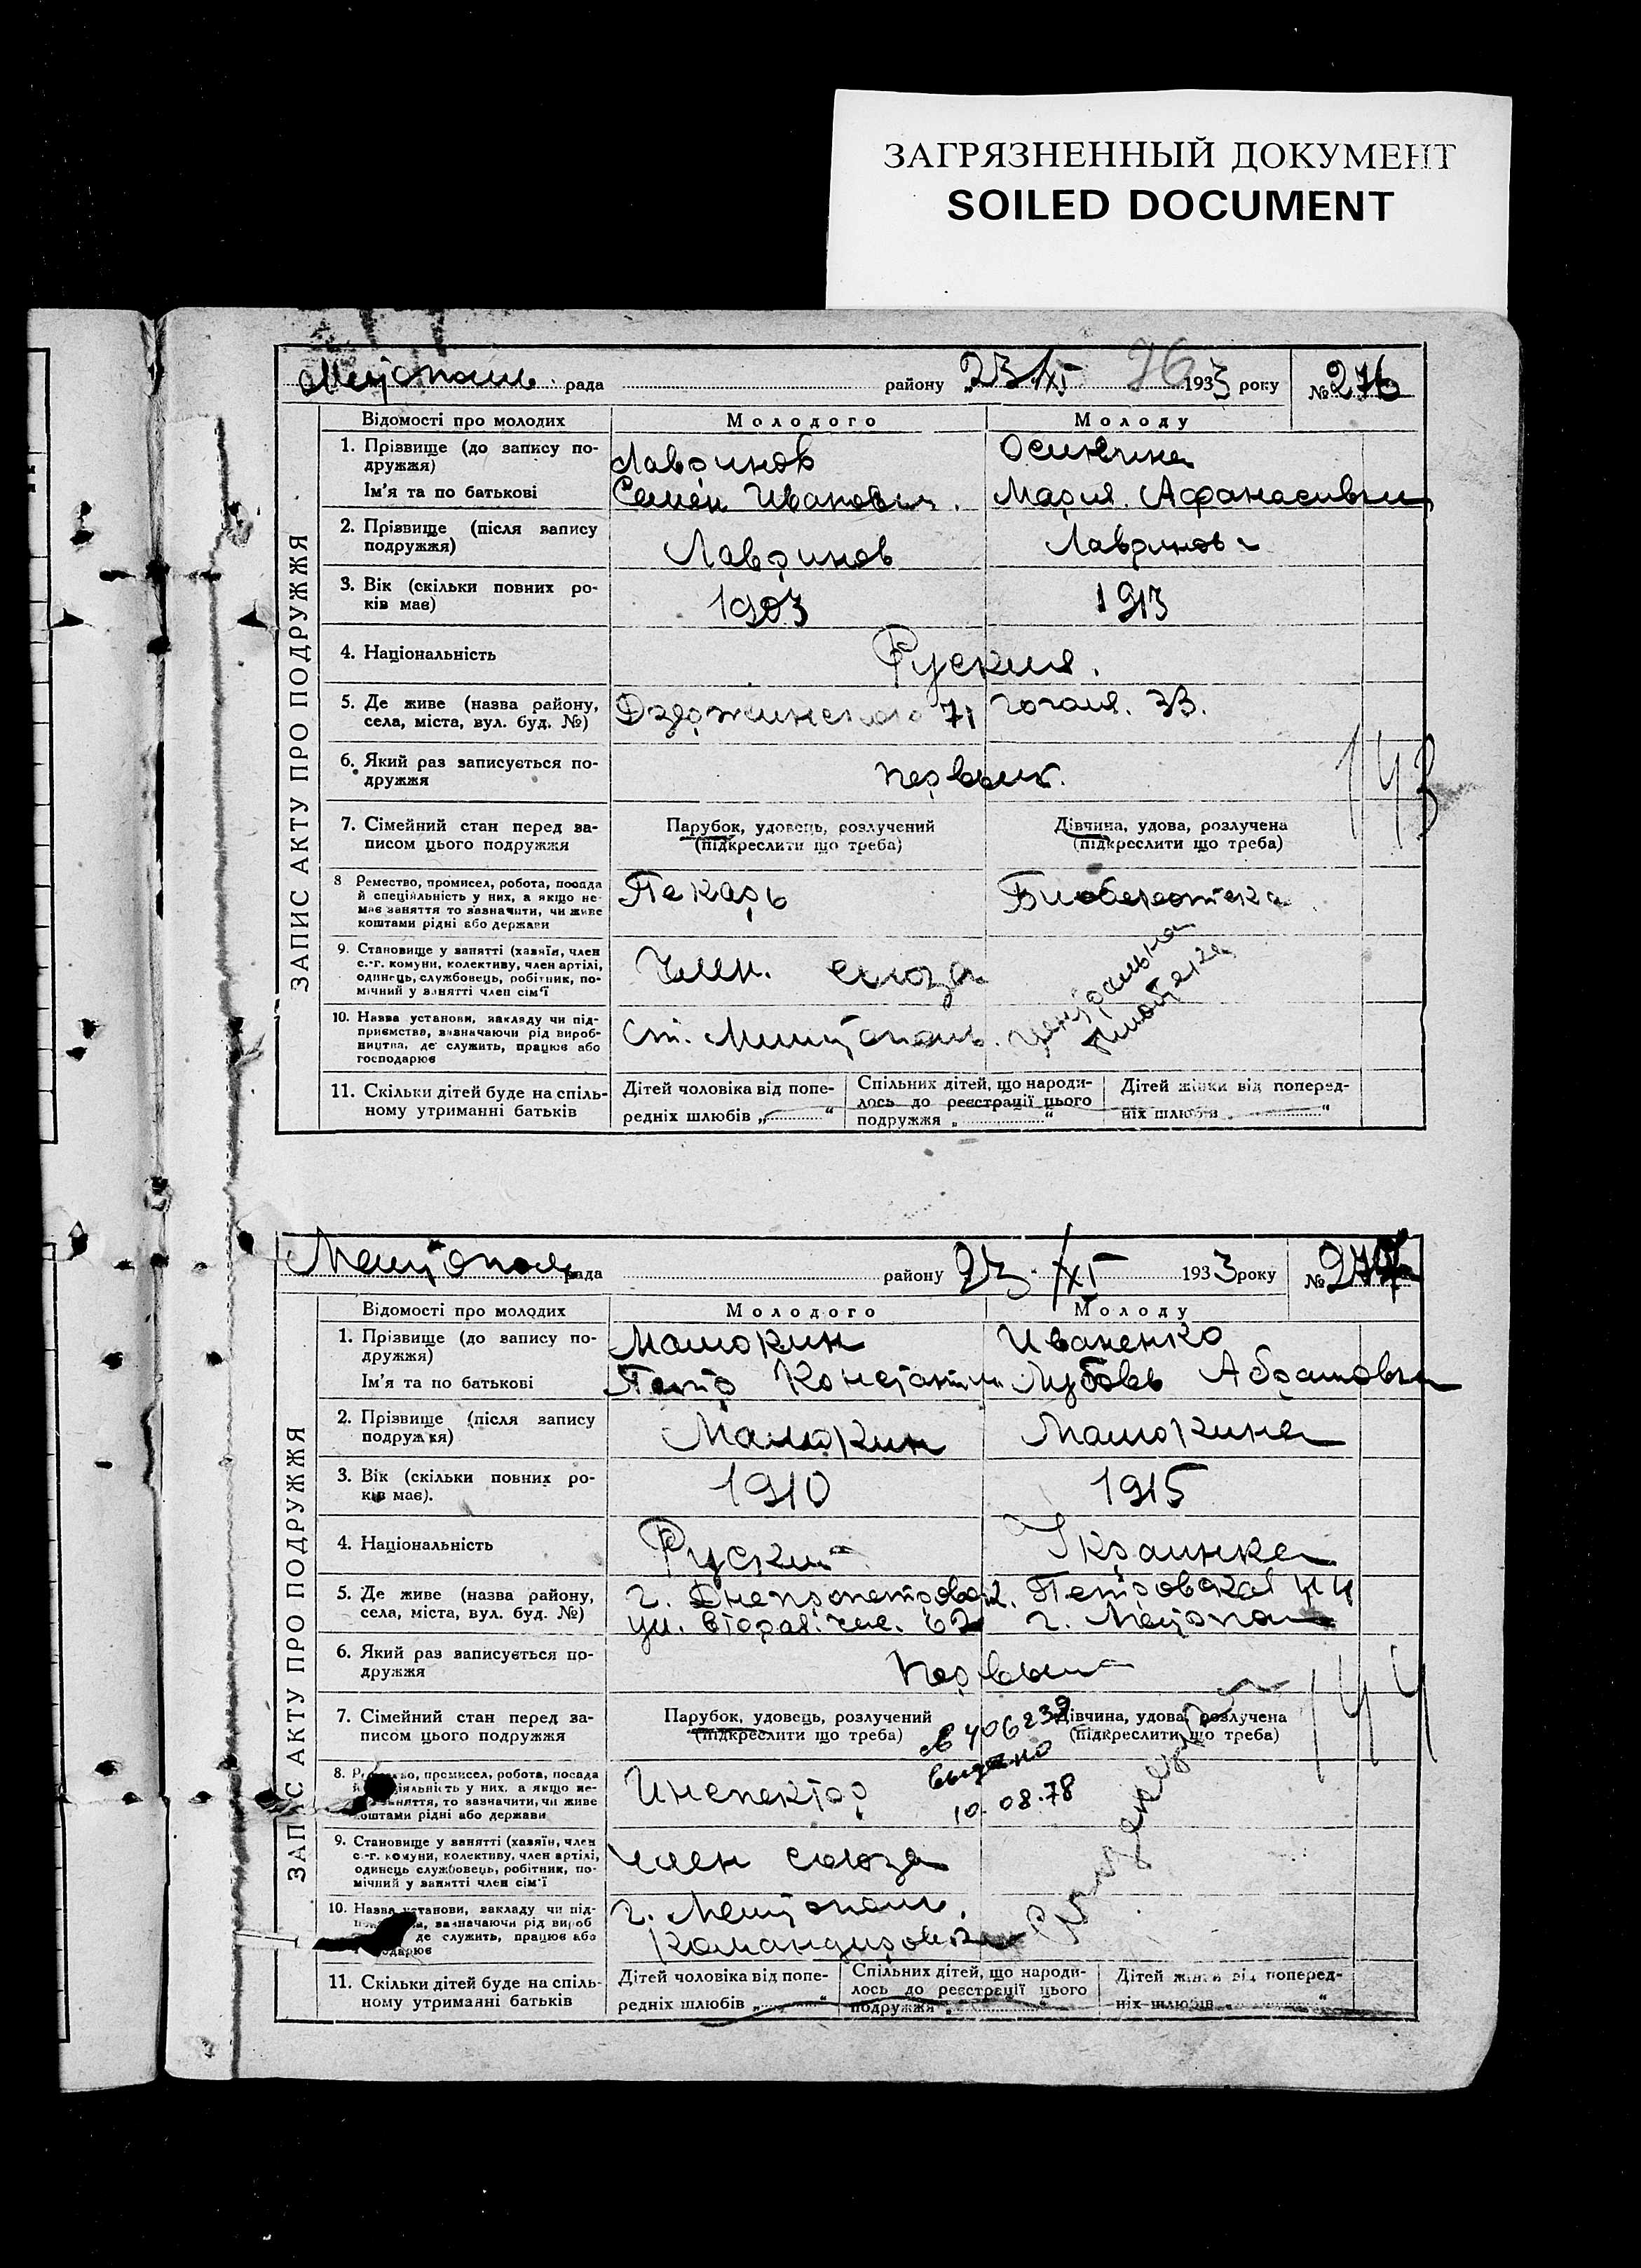 ЗАГРЯЗНЕННЫЙ ДОКУМЕНТ
SOILED DOCUMENT
рада району 23/XI 1933 року № 276
76
ЗАПИС АКТУ ПРО ПОДРУЖЖЯ
Відомості про молодих Молодого Молоду
1. Прізвище (до запису по-
дружжя)
Лавринов
Ім'я та по батькові Семён Иванович. Мария Афанасивны
2. Прізвище (після запису
подружжя)
Лавринов Лавринова
3. Вік (скільки повних ро-
ків має)
1903 1913
4. Національність Руския.
5. Де живе (назва району,
села, міста, вул. буд. №)
Дзержинского 71 Гоголя. 33.
6. Який раз записується по-
дружжя
143
7. Сімейний стан перед за-
писом цього подружжя
Парубок, удовець, розлучений
(підкреслити що треба)
Дівчина, удова, розлучена
(підкреслити що треба)
8 Ремество, промисел, робота, посада
й спеціяльність у них, а якщо не
має заняття то зазначити, чи живе
коштами рідні або держави
Пекарь
9. Становище у занятті (хазяїн, член
с.-г. комуни, колективу, член артілі,
одинець, службовець, робітник, по-
мічний у занятті член сім'ї
Член. союза
10. Назва установи, закладу чи під-
приємства, зазначаючи рід вироб-
ництва, де служить, працює або
господарює
11. Скільки дітей буде на спіль-
ному утриманні батьків
Дітей чоловіка від попе-
редніх шлюбів „ “
Спільних дітей, що народи-
лось до реєстрації цього
подружжя „ “
Дітей жінки від поперед-
ніх шлюбів „ “
рада району 23/XI 1933 року № 277
ЗАПИС АКТУ ПРО ПОДРУЖЖЯ
Відомості про молодих Молодого Молоду
1. Прізвище (до запису по-
дружжя)
Иваненко
Ім'я та по батькові Петр Константин Любовь Абрамовны
2. Прізвище (після запису
подружжя)
3. Вік (скільки повних ро-
ків має).
1910 1915
4. Національність Руский Украинка
5. Де живе (назва району,
села, міста, вул. буд. №)
г. Днепропетровск. Петровская 44
ул. 62 г.
6. Який раз записується по-
дружжя
144
7. Сімейний стан перед за-
писом цього подружжя
Парубок, удовець, розлучений
(підкреслити що треба)
Дівчина, удова, розлучена
(підкреслити що треба)
406239
выдано
10.08.78
8. Ремество, промисел, робота, посада
й спеціяльність у них, а якщо не-
має заняття, то зазначити, чи живе
коштами рідні або держави
Инспектор
9. Становище у занятті (хазяїн, член
с.-г. комуни, колективу, член артілі,
одинець службовець, робітник, по-
мічний у занятті член сім'ї
член союза
10. Назва установи, закладу чи під-
зазначаючи рід вироб
де служить, працює або
командировка
11. Скільки дітей буде на спіль-
ному утриманні батьків
Дітей чоловіка від попе-
редніх шлюбів „ “
Спільних дітей, що народи-
лось до реєстрації цього
подружжя „ “
Дітей жінки від поперед-
ніх шлюбів „ “